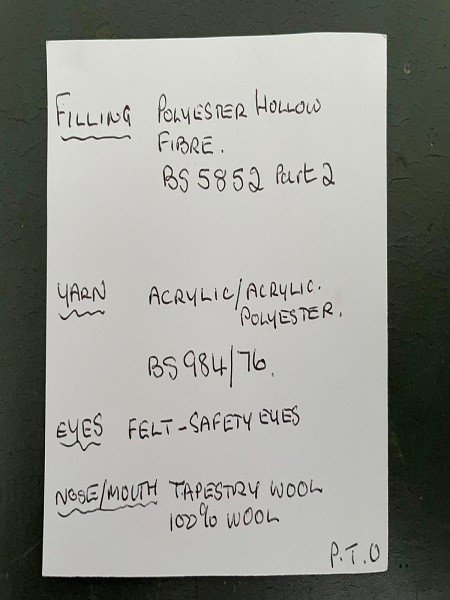 FILLING POLYESTER HOLLOW
FIBRE.
BS 5852 Part 2
YARN ACRYLIC/ACRYLIC.
POLYESTER.
BS 984/76.
EYES FELT-SAFETY EYES
NOSE/MOUTH TAPESTRY WOOL
100% WOOL
P.T.O